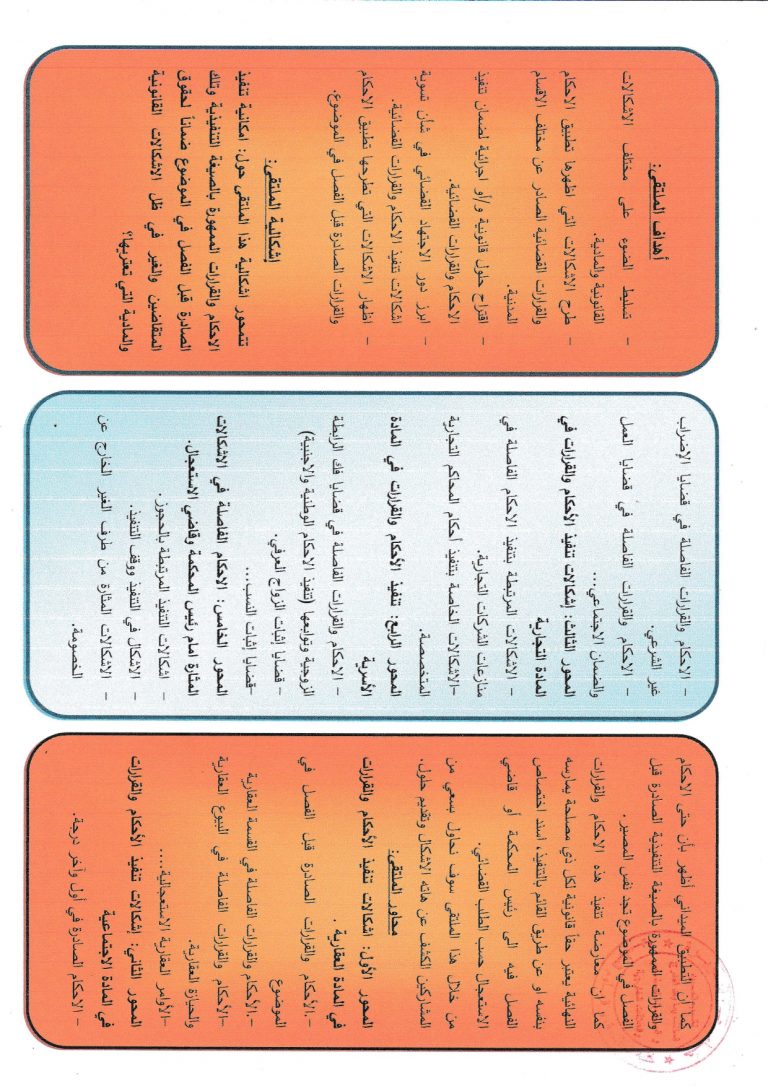 كما أن التطبيق الميداني أظهر بأن حتى الاحكام
والقرارات الممهورة بالصيغة التنفيذية الصادرة قبل
الفصل في الموضوع تجد نفس المصير .
كما ان معارضة تنفيذ هذه الاحكام والقرارات
النهائية يعتبر حقاً قانونية لكل ذي مصلحة يمارسه
بنفسه او عن طريق القائم بالتنفيذ، أسند اختصاص
الفصل فيه الى رئيس المحكمة أو قاضي
الاستعجال حسب الطلب القضائي.
من خلال هذا الملتقى سوف نحاول بسعي من
المشاركين الكشف عن هاته الاشكال وتقديم حلول.
محاور الملتقى:
المحور الأول: اشكالات تنفيذ الأحكام والقرارات
في المادة العقارية .
– الأحكام والقرارات الصادرة قبل الفصل في
الموضوع
– الأحكام والقرارات الفاصلة في القسمة العقارية
–الأحكام والقرارات الفاصلة في البيوع العقارية
والحيازة العقارية.
–الأوامر العقارية الاستعجالية....
المحور الثاني: إشكالات تنفيذ الأحكام والقرارات
في المادة الاجتماعية
– الاحكام الصادرة في أول وآخر درجة.
– الاحكام والقرارات الفاصلة في قضايا الإضراب
غير الشرعي.
– الاحكام والقرارات الفاصلة في قضايا العمل
والضمان الاجتماعي....
المحور الثالث: إشكالات تنفيذ الأحكام والقرارات في
المادة التجارية
– الاشكالات المرتبطة بتنفيذ الاحكام الفاصلة في
منازعات الشركات التجارية.
–الاشكالات الخاصة بتنفيذ أحكام المحاكم التجارية
المتخصصة.
المحور الرابع: تنفيذ الأحكام والقرارات في المادة
الأسرية
– الاحكام والقرارات الفاصلة في قضايا فك الرابطة
الزوجية وتوابعها (تنفيذ الاحكام الوطنية والاجنبية)
– قضايا إثبات الزواج العرفي.
–قضايا إثبات النسب....
المحور الخامس: الاحكام الفاصلة في الاشكالات
المثارة امام رئيس المحكمة وقاضي الاستعجال.
– اشكالات التنفيذ المرتبطة بالحجوز .
– الاشكال في التنفيذ ووقف التنفيذ.
– الاشكالات المثارة من طرف الغير الخارج عن
الخصومة.
أهداف الملتقى:
– تسليط الضوء على مختلف الاشكالات
القانونية والمادية.
– طرح الاشكالات التي اظهرها تطبيق الاحكام
والقرارات القضائية الصادر عن مختلف الاقسام
المدنية.
– اقتراح حلول قانونية و/أو اجرائية لضمان تنفيذ
الاحكام والقرارات القضائية.
– ابرز دور الاجتهاد القضائي في شأن تسوية
اشكالات تنفيذ الاحكام والقرارات القضائية.
– اظهار الاشكالات التي تطرحها تطبيق الاحكام
والقرارات الصادرة قبل الفصل في الموضوع.
إشكالية الملتقى:
تتمحور اشكالية هذا الملتقى حول: امكانية تنفيذ
الاحكام والقرارات الممهورة بالصيغة التنفيذية وتلك
الصادرة قبل الفصل في الموضوع ضماناً لحقوق
المتقاضين والغير في ظل الاشكالات القانونية
والمادية التي تعتريها؟